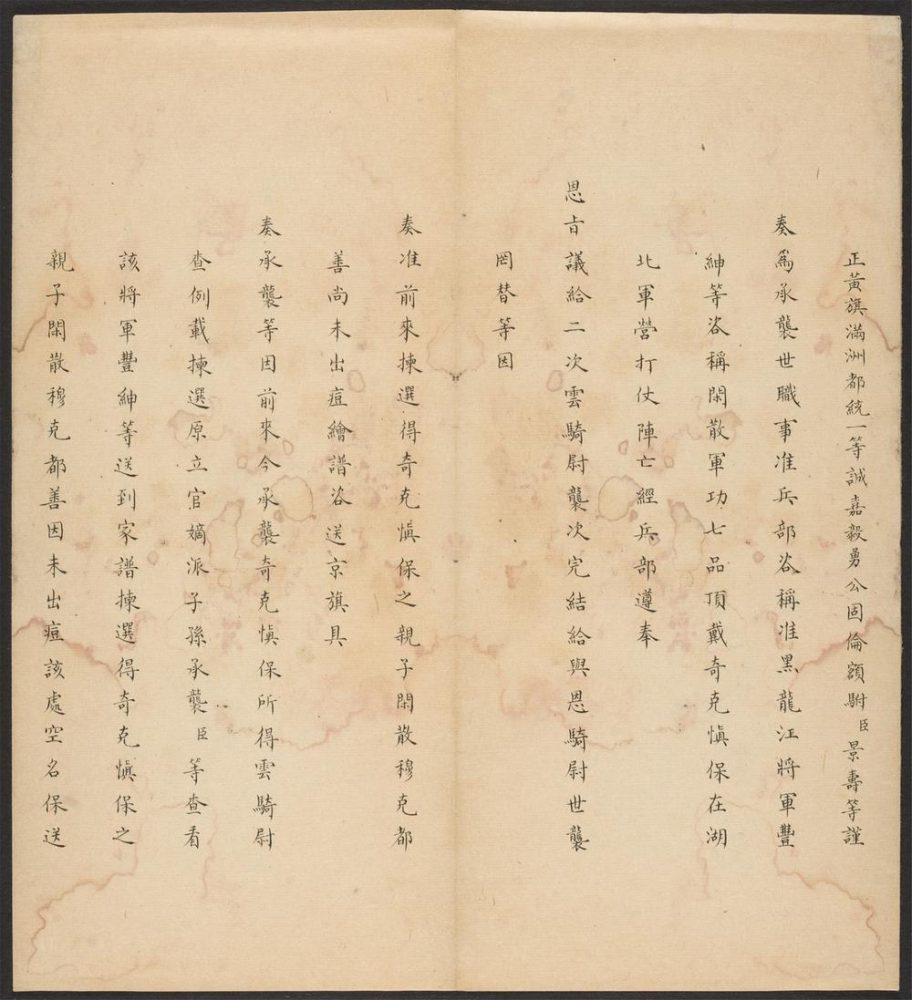 正黃旗滿洲都統一等誠嘉毅勇公固倫額駙臣景壽等謹
奏為承襲世職事准兵部咨稱准黑龍江將軍豐
紳等咨稱閑散軍功七品頂戴奇克慎保在湖
北軍營打仗陣亡經兵部遵奉
恩旨議給二次雲騎尉襲次完結給與恩騎尉世襲
罔替等因
奏准前來揀選得奇克慎保之親子閑散穆克都
善尚未出痘繪譜咨送京旗具
奏承襲等因前來今承襲奇克慎保所得雲騎尉
查例載揀選原立官嫡派子孫承襲臣等查看
該將軍豐紳等送到家譜揀選得奇克慎保之
親子閑散穆克都善因未出痘該處空名保送